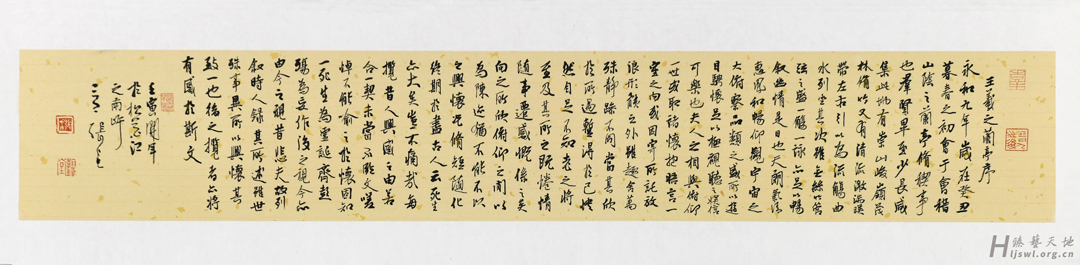 王羲之蘭亭序
永和九年歲在癸丑
暮春之初會于會稽
山陰之蘭亭脩稧事
也羣賢畢至少長咸
集此地有崇山峻嶺茂
林脩竹又有清流激湍映
帶左右引以為流觴曲
水列坐其次雖無絲竹管
弦之盛一觴一詠亦足以暢
叙幽情是日也天朗氣清
惠風和暢仰觀宇宙之
大俯察品類之盛所以遊
目騁懷足以極視聽之娛信
可樂也夫人之相與俯仰
一世或取諸懷抱晤言一
室之内或因寄所託放
浪形骸之外雖趣舍萬
殊靜躁不同當其欣
於所遇暫得於己快
然自足不知老之將
至及其所之既惓情
隨事遷感慨係之矣
向之所欣俛仰之閒以
為陳迹猶不能不以
之興懷況脩短隨化
終期於盡古人云死生
亦大矣豈不痛哉每
攬昔人興感之由若
合一契未嘗不臨文嗟
悼不能喻之於懷固知
一死生為虛誕齊彭
殤為妄作後之視今亦
由今之視昔悲夫故列
叙時人錄其所述雖世
殊事異所以興懷其
致一也後之攬者亦將
有感於斯文
壬寅
於松花江
之南岸
臻藝天地
Hljswl.org.cn